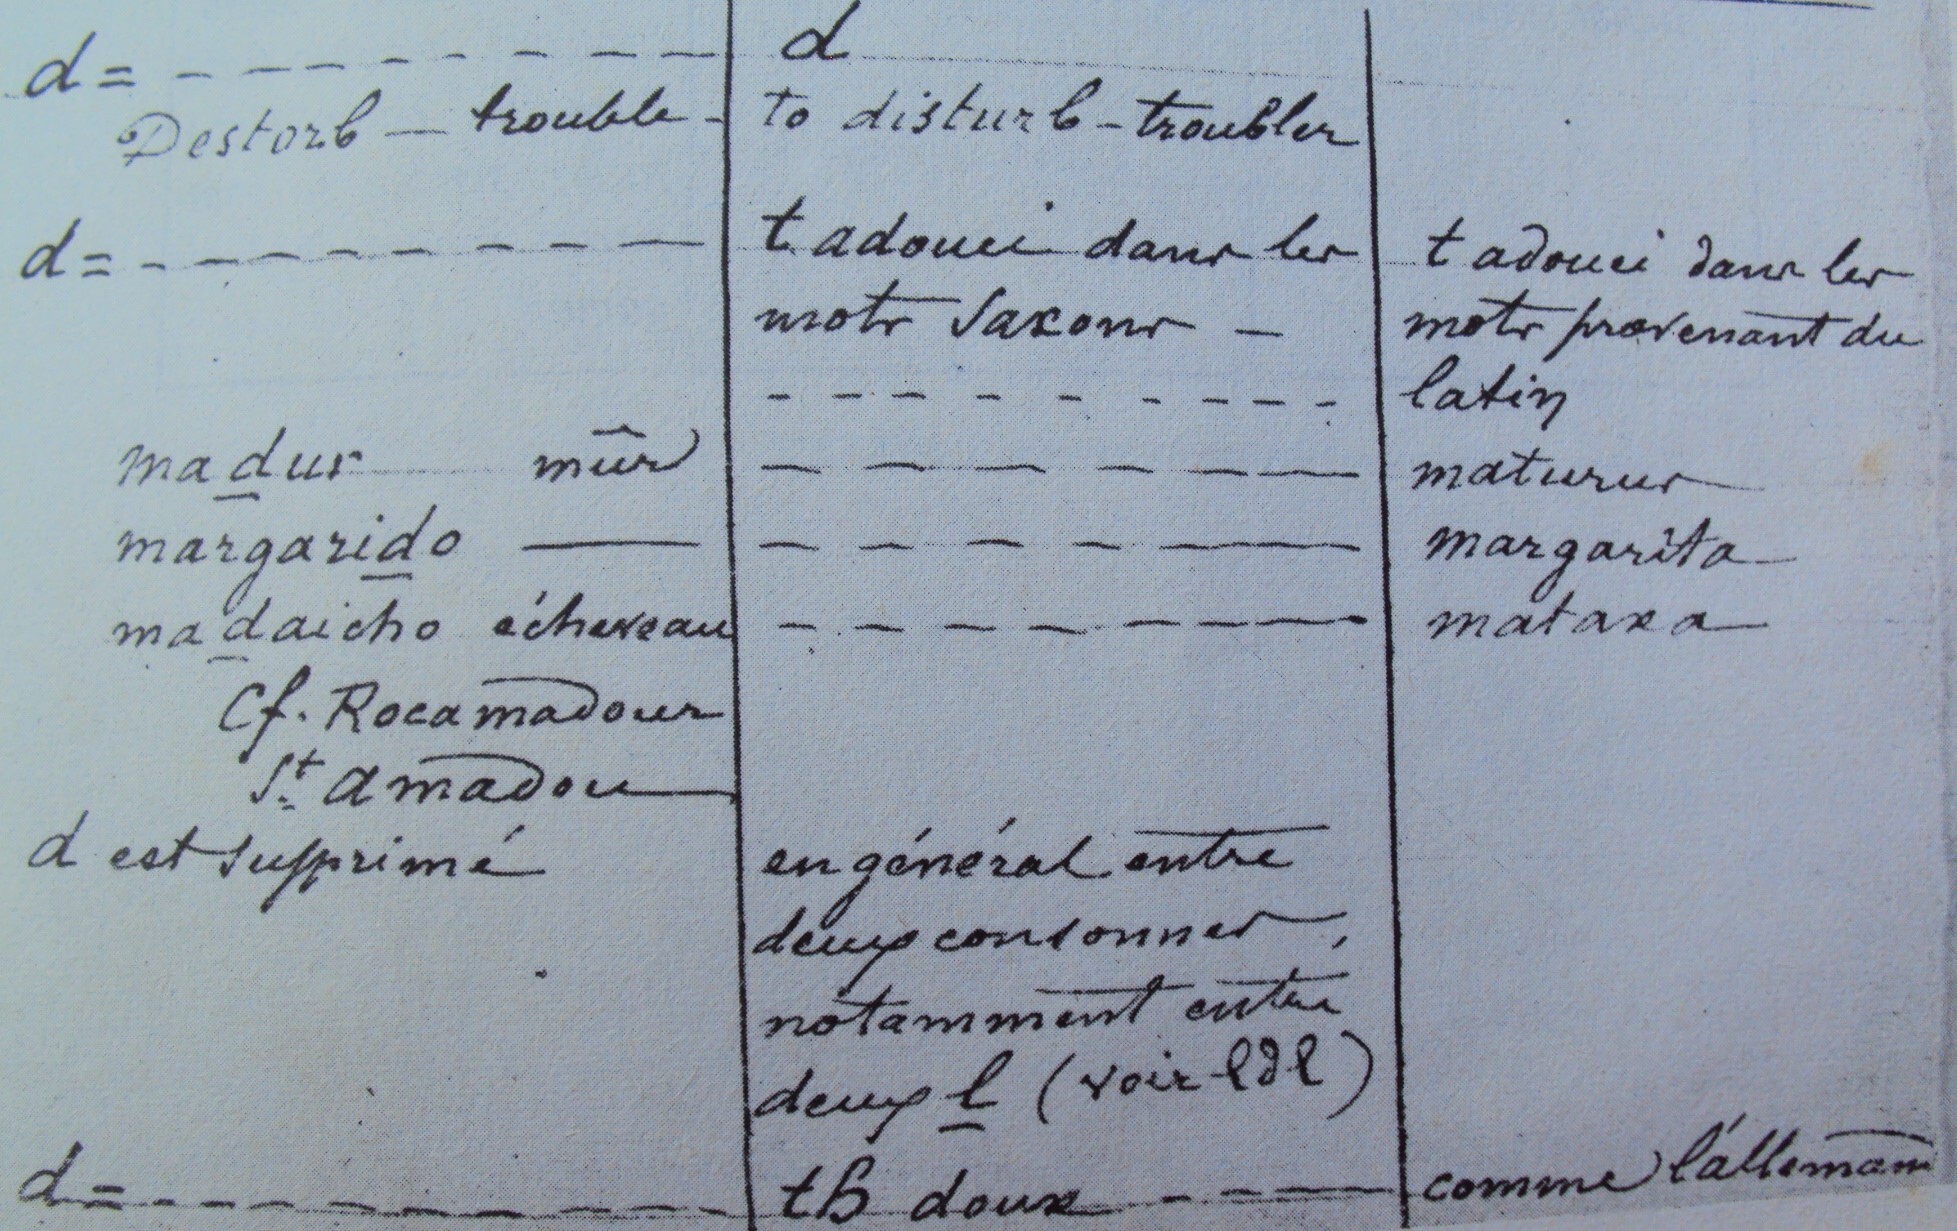 d = - - - - - - - - d
Destorb — trouble - to disturb - troubler
d = - - - - - - - - t adouci dans les t adouci dans les
mots Saxons - mots provenant du
- - - - - - - - - latin
madur mûr - - - - - - maturus
margarido — - - - - - - margarita
madaicho écheveau - - - - - - mataxa
Cf. Rocamadour
St. Amadou
d est supprimé en général entre
deux consonnes,
notamment entre
deux l (voir ldl)
d = - - - - - - - - th doux - - - - comme l'allemand